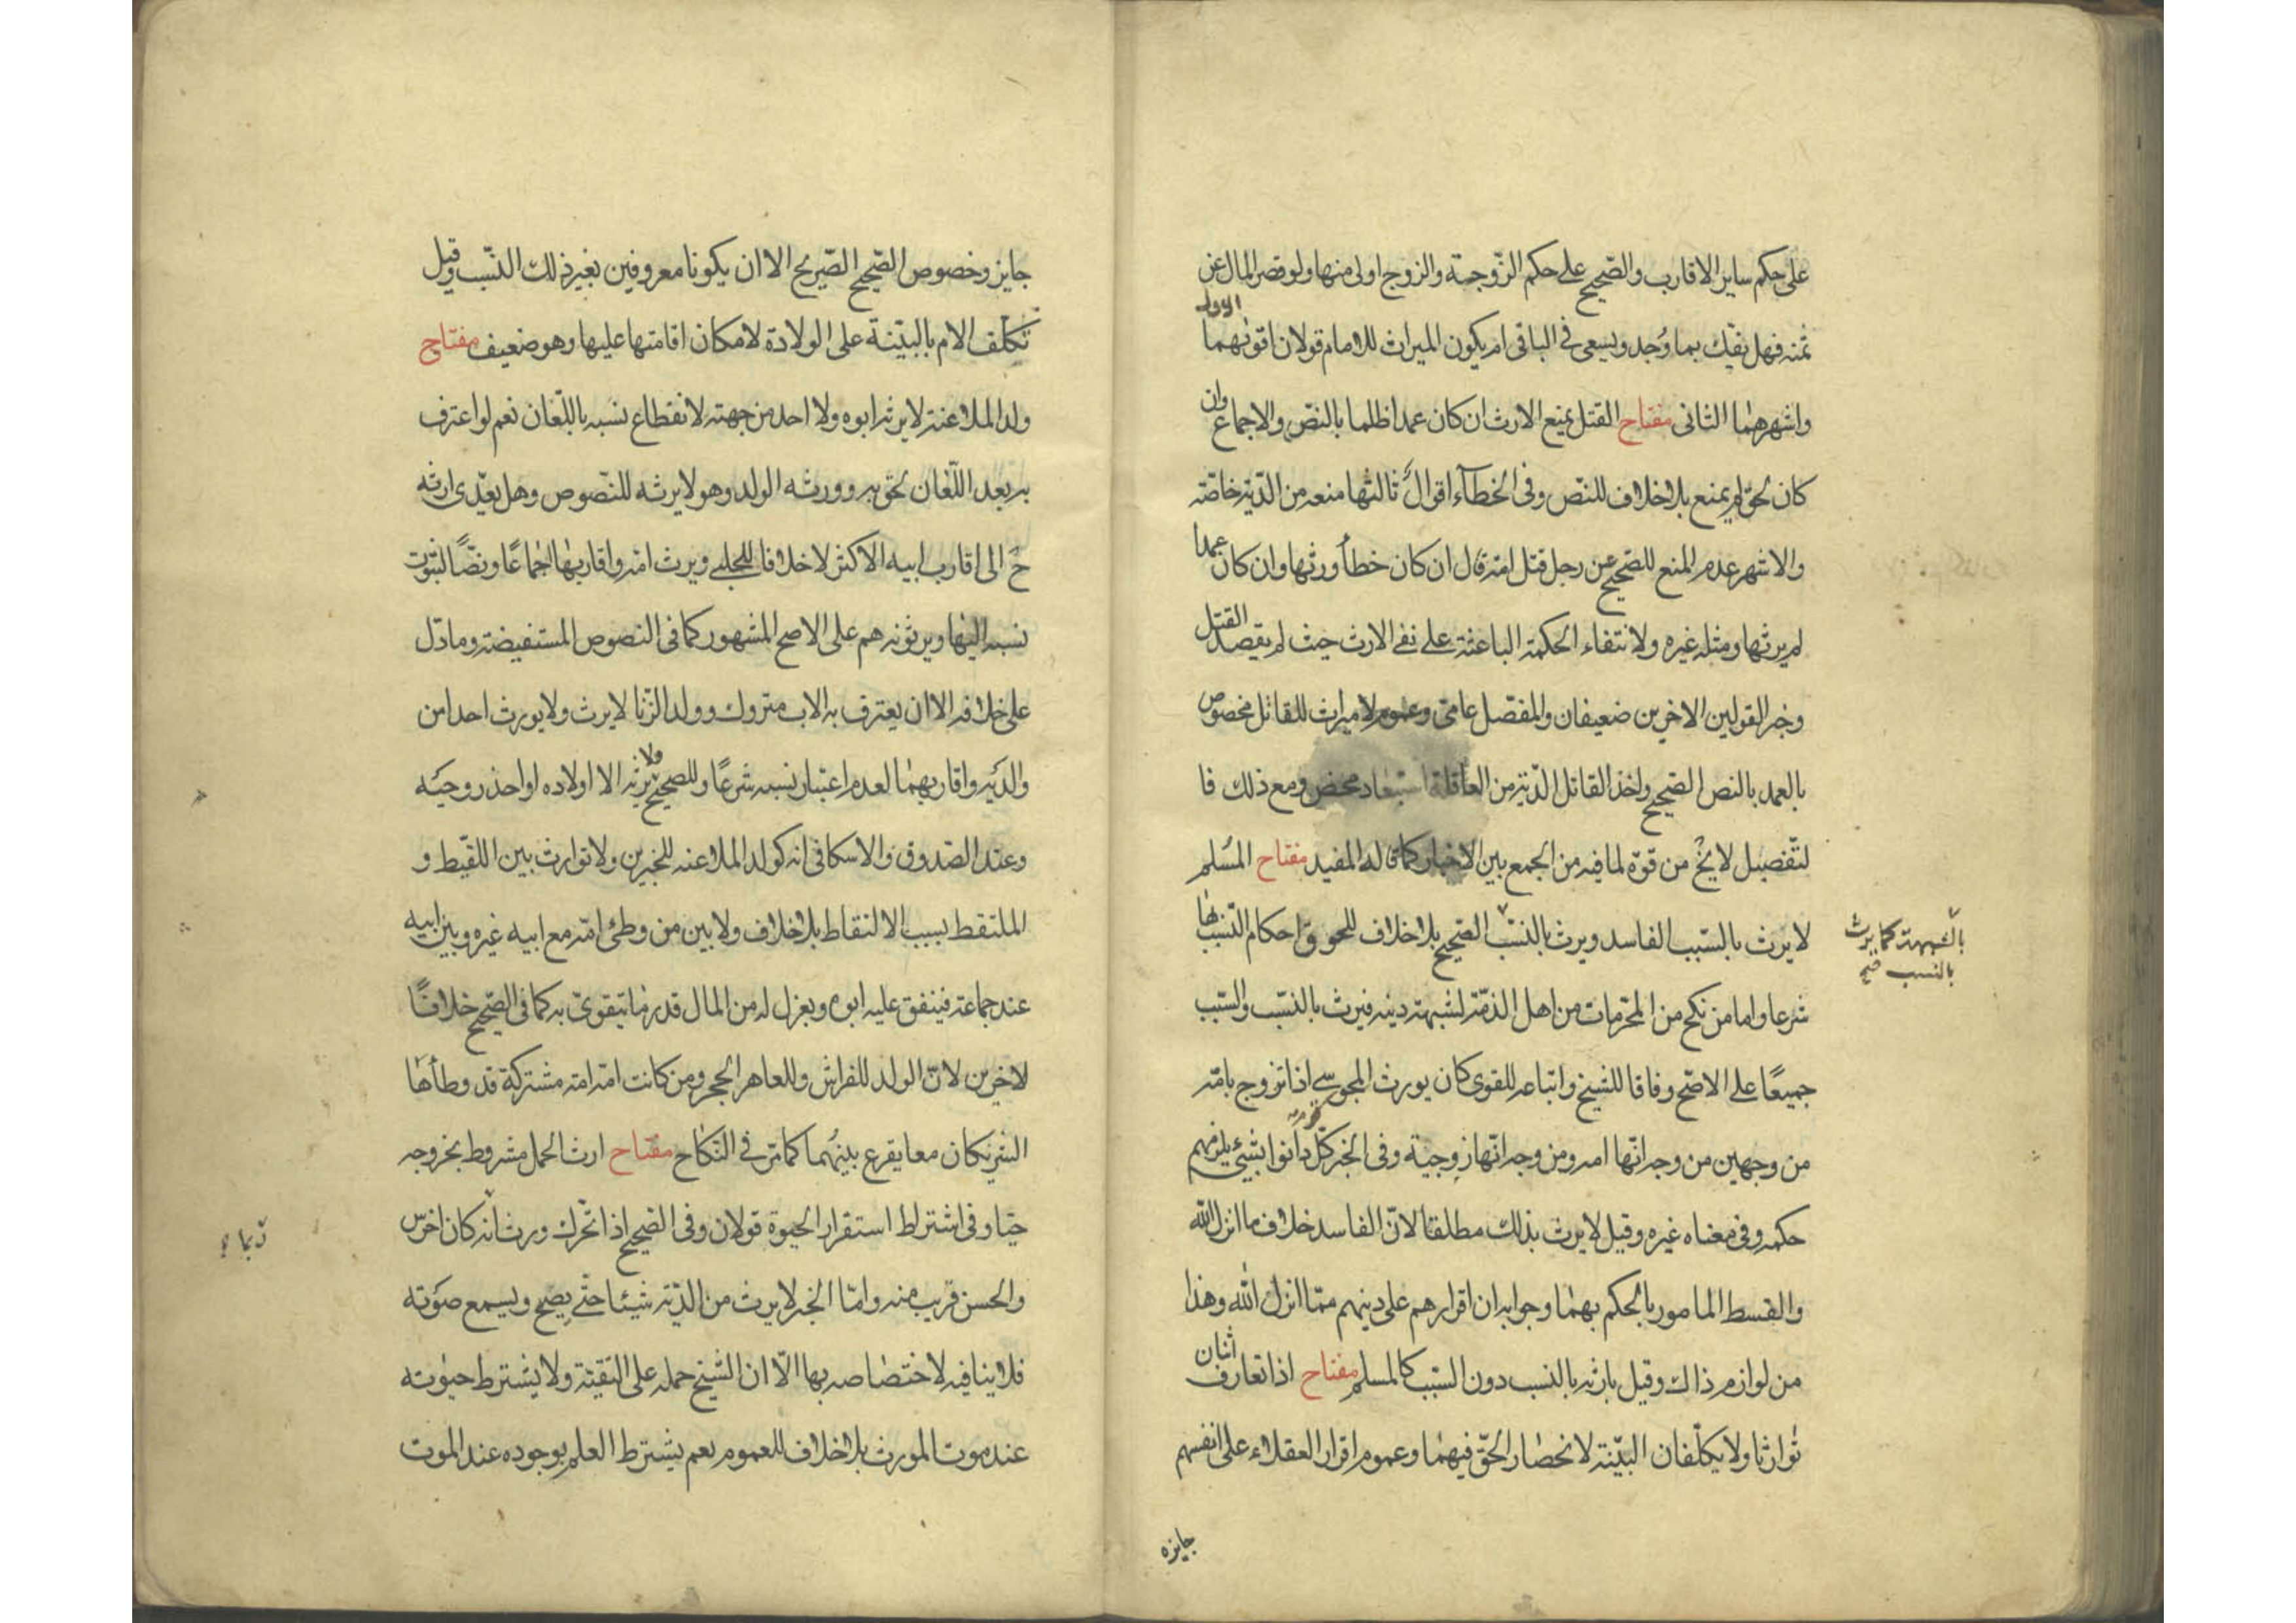 على حكم ساير الاقارب والصحيح على حكم الزوجة والزوج اولى منها ولو قصر المال عن
ثمنه فهل يفك بما وُجد ويسعى في الباقي ام يكون الميراث للامام قولان اقويهما الاول
واشهرهما الثاني مفتاح القتل يمنع الارث ان كان عمدا ظلما بالنص والاجماع وان
كان بحق لم يمنع بلا خلاف للنص وفي الخطاء اقوال ثالثها منعه من الدية خاصة
والاشهر عدم المنع للصحيح عن رجل قتل امه قال ان كان خطأ ورثها وان كان عمدا
لم يرثها ومثله غيره ولانتفاء الحكمة الباعثة على نفي الارث حيث لم يقصد القتل
وخبر القولين الاخرين ضعيفان والمفصل عامي وعموم لا ميراث للقاتل مخصوص
بالعمد بالنص الصحيح واخذ القاتل الدية من العاقلة استبعاد محض ومع ذلك فا
لتفصيل لا يخ من قوة لما فيه من الجمع بين الاخبار كما قاله المفيد مفتاح المسلم
لا يرث بالسبب الفاسد ويرث بالنسب الصحيح بلا خلاف للحوق احكام النسب بها
بالشبهة كما يرث
بالنسب صح
شرعا واما من نكح من المحرمات من اهل الذمة لشبهة دينه فيرث بالنسب والسبب
جميعًا على الاصح وفاقا للشيخ واتباعه للقوى كان يورث المجوسي اذا تزوج بامه
من وجهين من وجه انها امه ومن وجه انها زوجية وفي الخبر كل قوم دانوا بشئ يلزمهم
حكمه وفي معناه غيره وقيل لا يرث بذلك مطلقا لان الفاسد خلاف ما انزل الله
والقسط المامور بالحكم بهما وجوابه ان اقرارهم على دينهم مما انزل الله وهذا
من لوازم ذاك وقيل بارثه بالنسب دون السبب كالمسلم مفتاح اذا تعارف اثنان
توارثا ولا يكلفان البينة لانحصار الحق فيهما وعموم اقرار العقلاء على انفسهم
جايزه
جايز وخصوص الصحيح الصريح الا ان يكونا معروفين بغير ذلك النسب وقيل
تكلف الام بالبينة على الولادة لامكان اقامتها عليها وهو ضعيف مفتاح
ولد الملاعنة لا يرثه ابوه ولا احد من جهته لانقطاع نسبه باللعان نعم لو اعترف
به بعد اللعان لحق به وورثه الولد وهو لا يرثه للنصوص وهل يعدى ارثه
ح الى اقارب ابيه الاكثر لا خلافا للحلبي ويرث امه واقاربها اجماعًا ونصًا لثبوت
نسبه اليها ويرثونه هم على الاصح المشهور كما في النصوص المستفيضة وما دل
على خلافه الا ان يعترف به الاب متروك وولد الزنا لا يرث ولا يورث احدا من
والديه واقاربهما لعدم اعتبار نسبه شرعًا وللصحيح ولا يرثه الا اولاده او احد زوجيه
وعند الصدوق والاسكافي انه كولد الملاعنه للخبرين ولا توارث بين اللقيط و
الملتقط بسبب الالتقاط بلا خلاف ولا بين من وطئ امه مع ابيه غيره وبين ابيه
عند جماعة فينفق عليه ابوه ويعزل له من المال قدر ما يتقوى به كما في الصحيح خلافًا
لاخرين لان الولد للفراش وللعاهر الحجر ومن كانت امه امة مشتركة قد وطأها
الشريكان معا يقرع بينهما كما مر في النكاح مفتاح ارث الحمل مشروط بخروجه
حيا وفي اشتراط استقرار الحيوة قولان وفي الصحيح اذا تحرك ورث انه كان اخرس
والحسن قريب منه واما الخبر لا يرث من الدية شيئا حتى يصيح ويسمع صوته
فلا ينافيه لاختصاصه بها الا ان الشيخ حمله على التقية ولا يشترط حيوته
عند موت المورث بلا خلاف للعموم نعم يشترط العلم بوجوده عند الموت